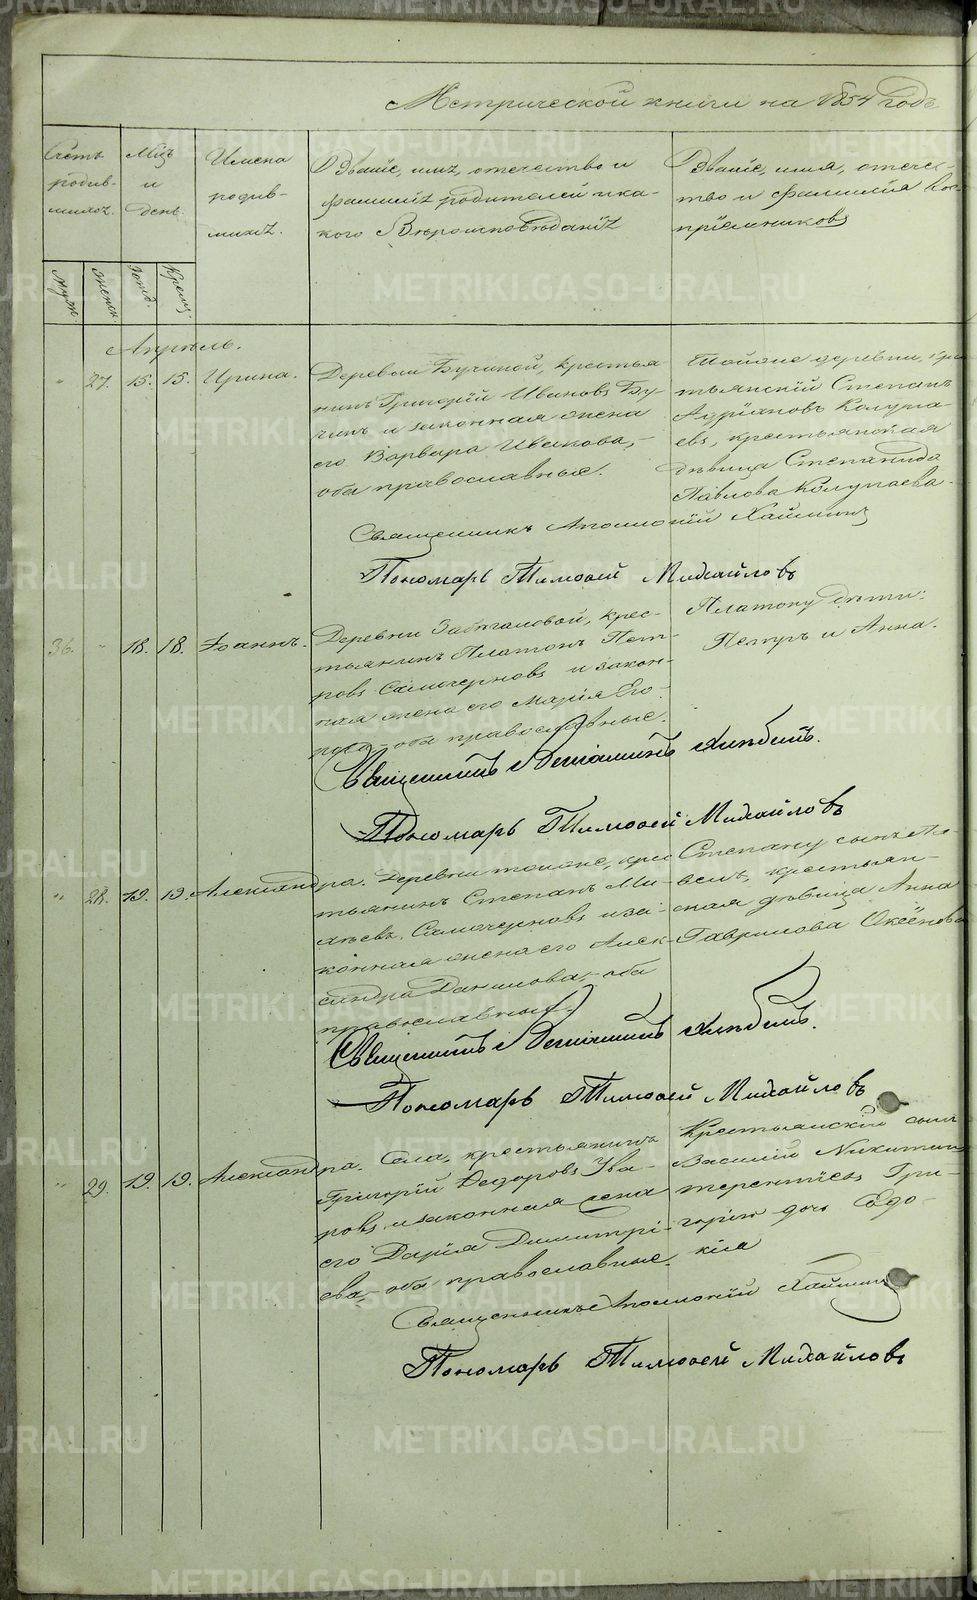 Метрической книги на 1854 годъ
Счетъ родив-шихся.
Мѣцъ и день.
Имена родив-шихся.
Званіе, имя, отечество и
фамилія родителей и ка-
кого Вѣроисповѣданія
Званіе, имя, отече-
ство и фамилія вос-
пріемниковъ
Муж.
Женск.
Рожд.
Крещ.
Апрѣль.
" 27. 15. 15. Ирина.
Деревни Бучиной, крестья-
нинъ Григорій Ивановъ Бу-
чинъ и законная жена
его Варвара Иванова,
оба православные.
Тойже деревни, крес-
тьянскій Степанъ
Адріановъ Колупа-
евъ, крестьянская
дѣвица Степанида
Павлова Колупаева.
Священникъ Аполлоній Хайминъ
Пономарь Тимоѳей Михайловъ
36. " 18. 18. Іоаннъ.
Деревни крес-
тьянинъ Платонъ Пет-
ровъ Самочерновъ и закон-
ная жена его Марія Его-
рова, оба православные.
Платону дѣти:
Петръ и Анна.
Священникъ Веніаминъ
Пономарь Тимоѳей Михайловъ
" 28. 19. 19. Александра.
Деревни тойже, крес-
тьянинъ Степанъ Ми-
хѣевъ Самочерновъ и за-
конная жена его Алек-
сандра Данилова, оба
православные.
Степану сынъ Па-
велъ, крестьян-
ская дѣвица Анна
Гаврилова Оксёнова
Священникъ Веніаминъ
Пономарь Тимоѳей Михайловъ
" 29. 19. 19. Александра.
Села, крестьянинъ
Григорій Ѳедоровъ Ува-
ровъ и законная жена
его Дарія Димитрі-
ева, оба православные.
Крестьянскій сынъ
Василій Никитинъ
Терентьевъ, Гри-
горію дочь Евдо-
кія
Священникъ Аполлоній Хайминъ
Пономарь Тимоѳей Михайловъ
METRIKI.GASO-URAL.RU